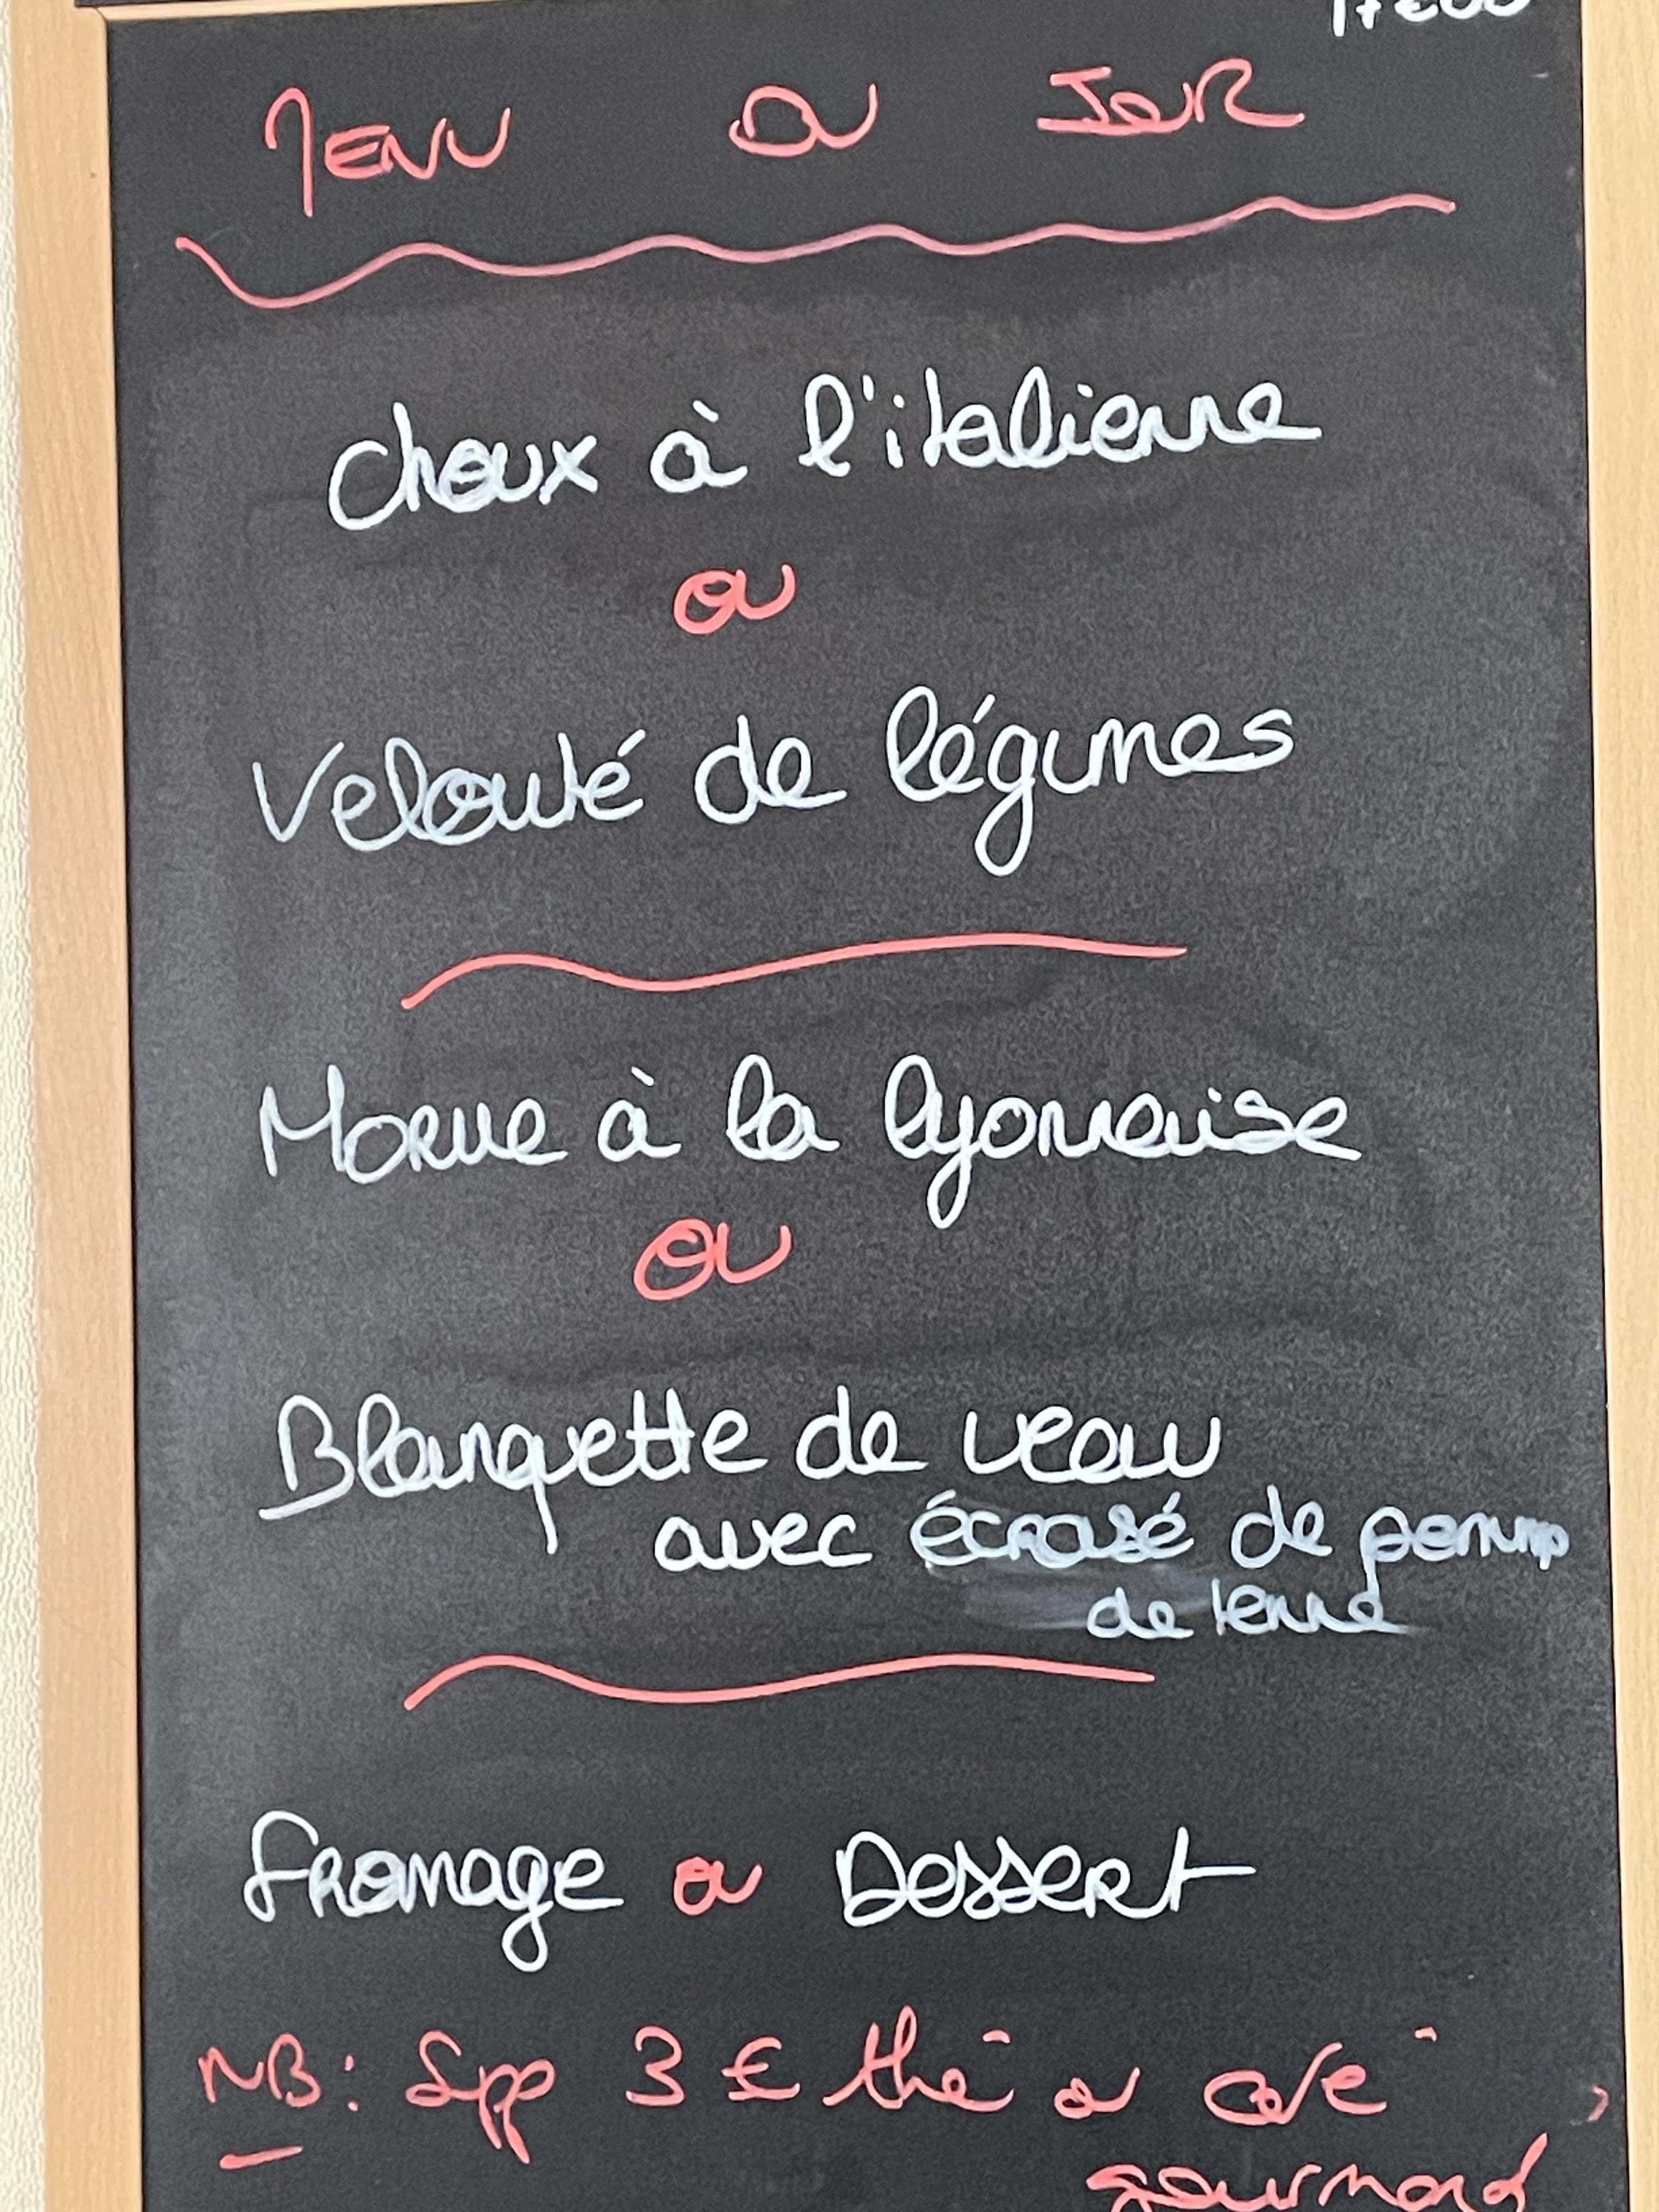 MENU DU JOUR
Choux à l'italienne
ou
Velouté de légumes
Morue à la lyonnaise
ou
Blanquette de veau
avec écrasé de pomme
de terre
Fromage ou Dessert
NB: Spp 3 € thé ou café
gourmand